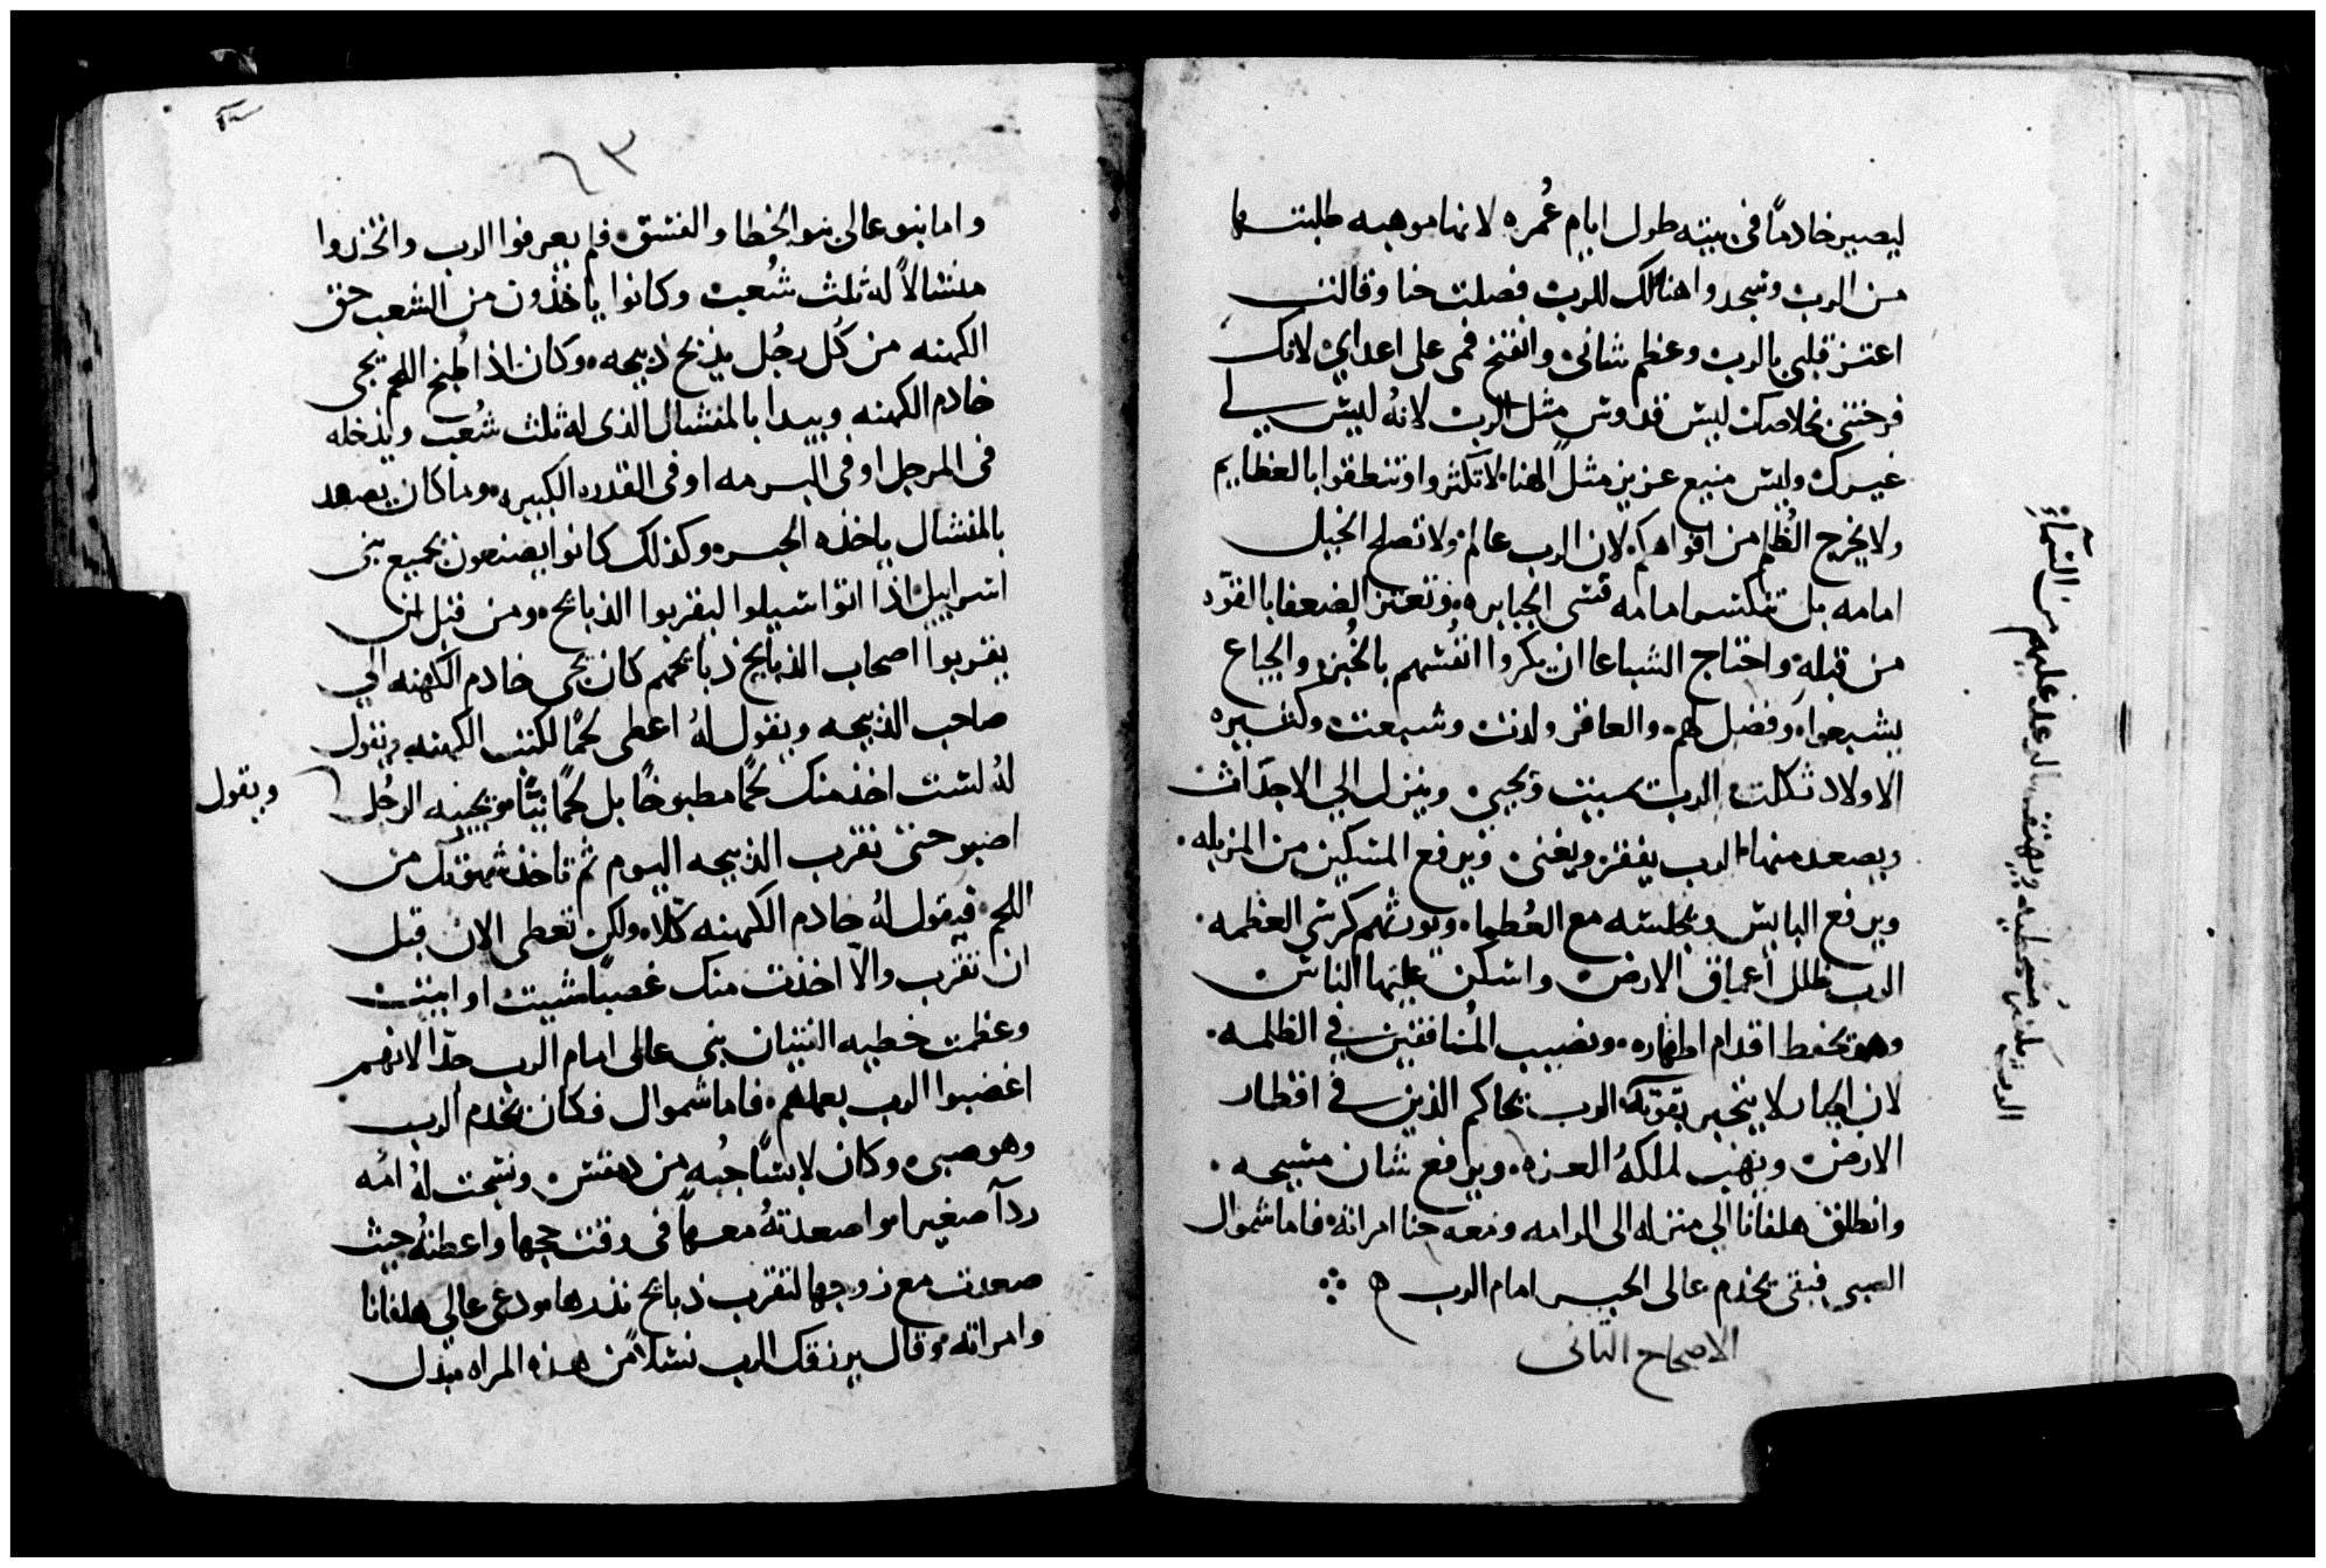 ليصير خادمًا في بيته طول ايام عُمره لانها موهبه طلبتها
من الرب وسجدوا هنالك للرب فصلت حنا وقالت
اعتز قلبي بالرب وعظم شاني وانفتح فمي على اعداي لانك
فرحتني بخلاصك ليس قدوس مثل الرب لانهُ ليس لي
غيرك وليس منيع عزيز مثل الهنا لا تكثروا وتنطقوا بالعظايم
ولا يخرج الظُلم من افواهكم لان الرب عالم ولا تصلح الحيل
امامه بل تنكسر امامه قسى الجبابره وتعتز الضعفا بالقوه
من قبله واحتاج الشباعا ان يكروا انفُسهم بالخُبز والجياع
يشبعوا وفضل لهم والعاقر ولدت وشبعت وكثيره
الاولاد ثكلت الرب يميت ويحيي وينزل الي الاجداث
ويصعد منها الرب يفقر ويغني ويرفع المسكين من المزبله
ويرفع البايس ويجلسه مع العُظما ويورثهم كرسي العظمه
الرب ظلل أعماق الارض واسكن عليها الناس
وهو يحفظ اقدام اطهاره ونصيب المُنافقين في الظلمه
لان الجبار لا يتجبر بقوته الرب يحاكم الذين في اقطار
الارض ويهب لملكهُ العزه ويرفع شان مسيحه
وانطلق هلفانا الي منزله الى الرامه ومعه حنا امراته فاما شموال
الصبى فبقى يخدم عالى الحبر امام الرب
الاصحاح الثانى
الرب يلعن مُسخطيه ويهتف الرعد عليهم من السمآء
٦٣
واما بنو عالى بنو الخطا والفسق فلم يعرفوا الرب واتخذوا
منشالاً له ثلث شُعب وكانوا ياخذون من الشعب حق
الكهنه من كُل رجُل يذبح ذبيحه وكان اذا طُبخ اللحم يجى
خادم الكهنه وبيده المنشال الذى له ثلث شُعب ويُدخله
فى المرجل او فى البرمه او فى القدره الكبيره وما كان يصعد
بالمنشال ياخذه الحبر وكذلك كانوا يصنعون بجميع بنى
اسراييل اذا اتوا شيلوا ليقربوا الذبائح ومن قبل ان
يقربوا اصحاب الذبايح ذبائحهم كان يجى خادم الكهنه الي
صاحب الذبيحه ويقول لهُ اعطى لحمًا لكنت الكهنه ويقول
لهُ لست اخذ منك لحمًا مطبوخًا بل لحمًا نيًّا ويجيبه الرجُل
ويقول
اصبر حتى نقرب الذبيحه اليوم ثم تاخذ شهوتك من
اللحم فيقول لهُ خادم الكهنه كلا ولكن تعطى الان قبل
ان تقرب والاّ اخذت منك غصبًا شيت او ابيت
وعظمت خطيه الفتيان بنى عالى امام الرب جدّا لانهم
اغضبوا الرب بعملهم فاما شموال فكان يخدم الرب
وهو صبى وكان لابسًا جُبه من دمقس ونسجت لهُ امُه
ردآ صغيرا واصعدتهُ معها فى وقت حجها واعطتهُ حيث
صعدت مع زوجها لتقرب ذبائح نذرها ودعى عالي هلفانا
وامراته وقال يرزقك الرب نسلاً من هذه المراه مبذل